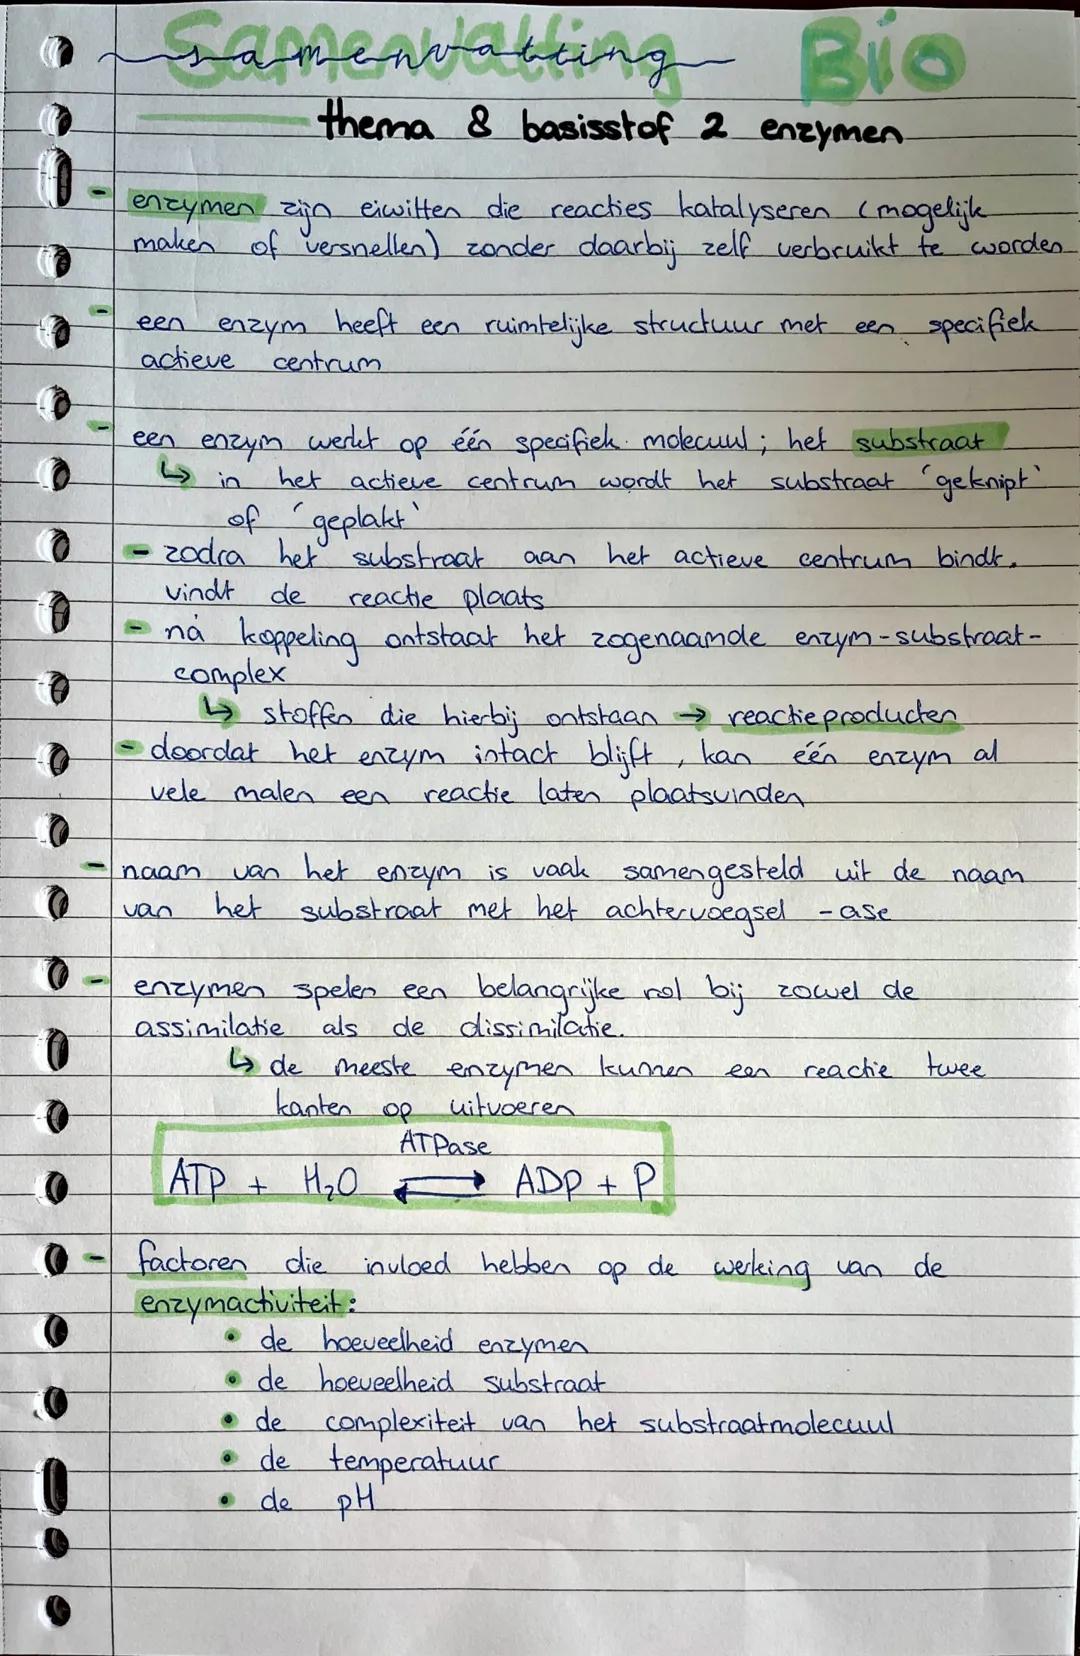 Samenvatting Bio
samenvatting
thema 8 basisstof 2 enzymen
- enzymen zijn eiwitten die reacties katalyseren (mogelijk
maken of versnellen) zonder daarbij zelf verbruikt te worden
- een enzym heeft een ruimtelijke structuur met een specifiek
actieve centrum
- een enzym werkt op één specifiek molecuul; het substraat
↳ in het actieve centrum wordt het substraat 'geknipt'
of 'geplakt'
- zodra het substraat aan het actieve centrum bindt,
vindt de reactie plaats
- ná koppeling ontstaat het zogenaamde enzym-substraat-
complex
↳ stoffen die hierbij ontstaan → reactieproducten
- doordat het enzym intact blijft, kan één enzym al
vele malen een reactie laten plaatsvinden
- naam van het enzym is vaak samengesteld uit de naam
van het substraat met het achtervoegsel -ase
- enzymen spelen een belangrijke rol bij zowel de
assimilatie als de dissimilatie.
↳ de meeste enzymen kunnen een reactie twee
kanten op uitvoeren
ATPase
ATP + H₂O ⇌ ADP + P
- factoren die invloed hebben op de werking van de
enzymactiviteit:
• de hoeveelheid enzymen
• de hoeveelheid substraat
• de complexiteit van het substraatmolecuul
• de temperatuur
• de pH